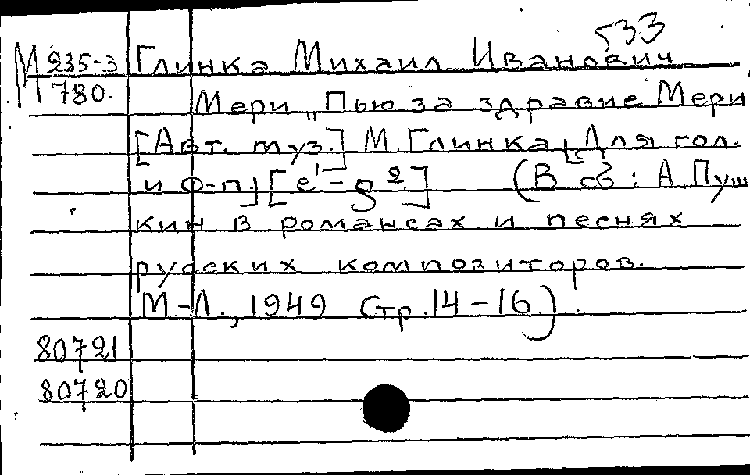 533
М 235-3 Глинка Михаил Иванович
780. Мери „Пью за здравие Мери
[Авт. муз.] М Глинка, Для гол.
и ф-п] [e¹-g²] (В сб: А Пуш
кин в романсах и песнях
русских композиторов.
М-Л., 1949 Стр. 14-16).
80721
80720